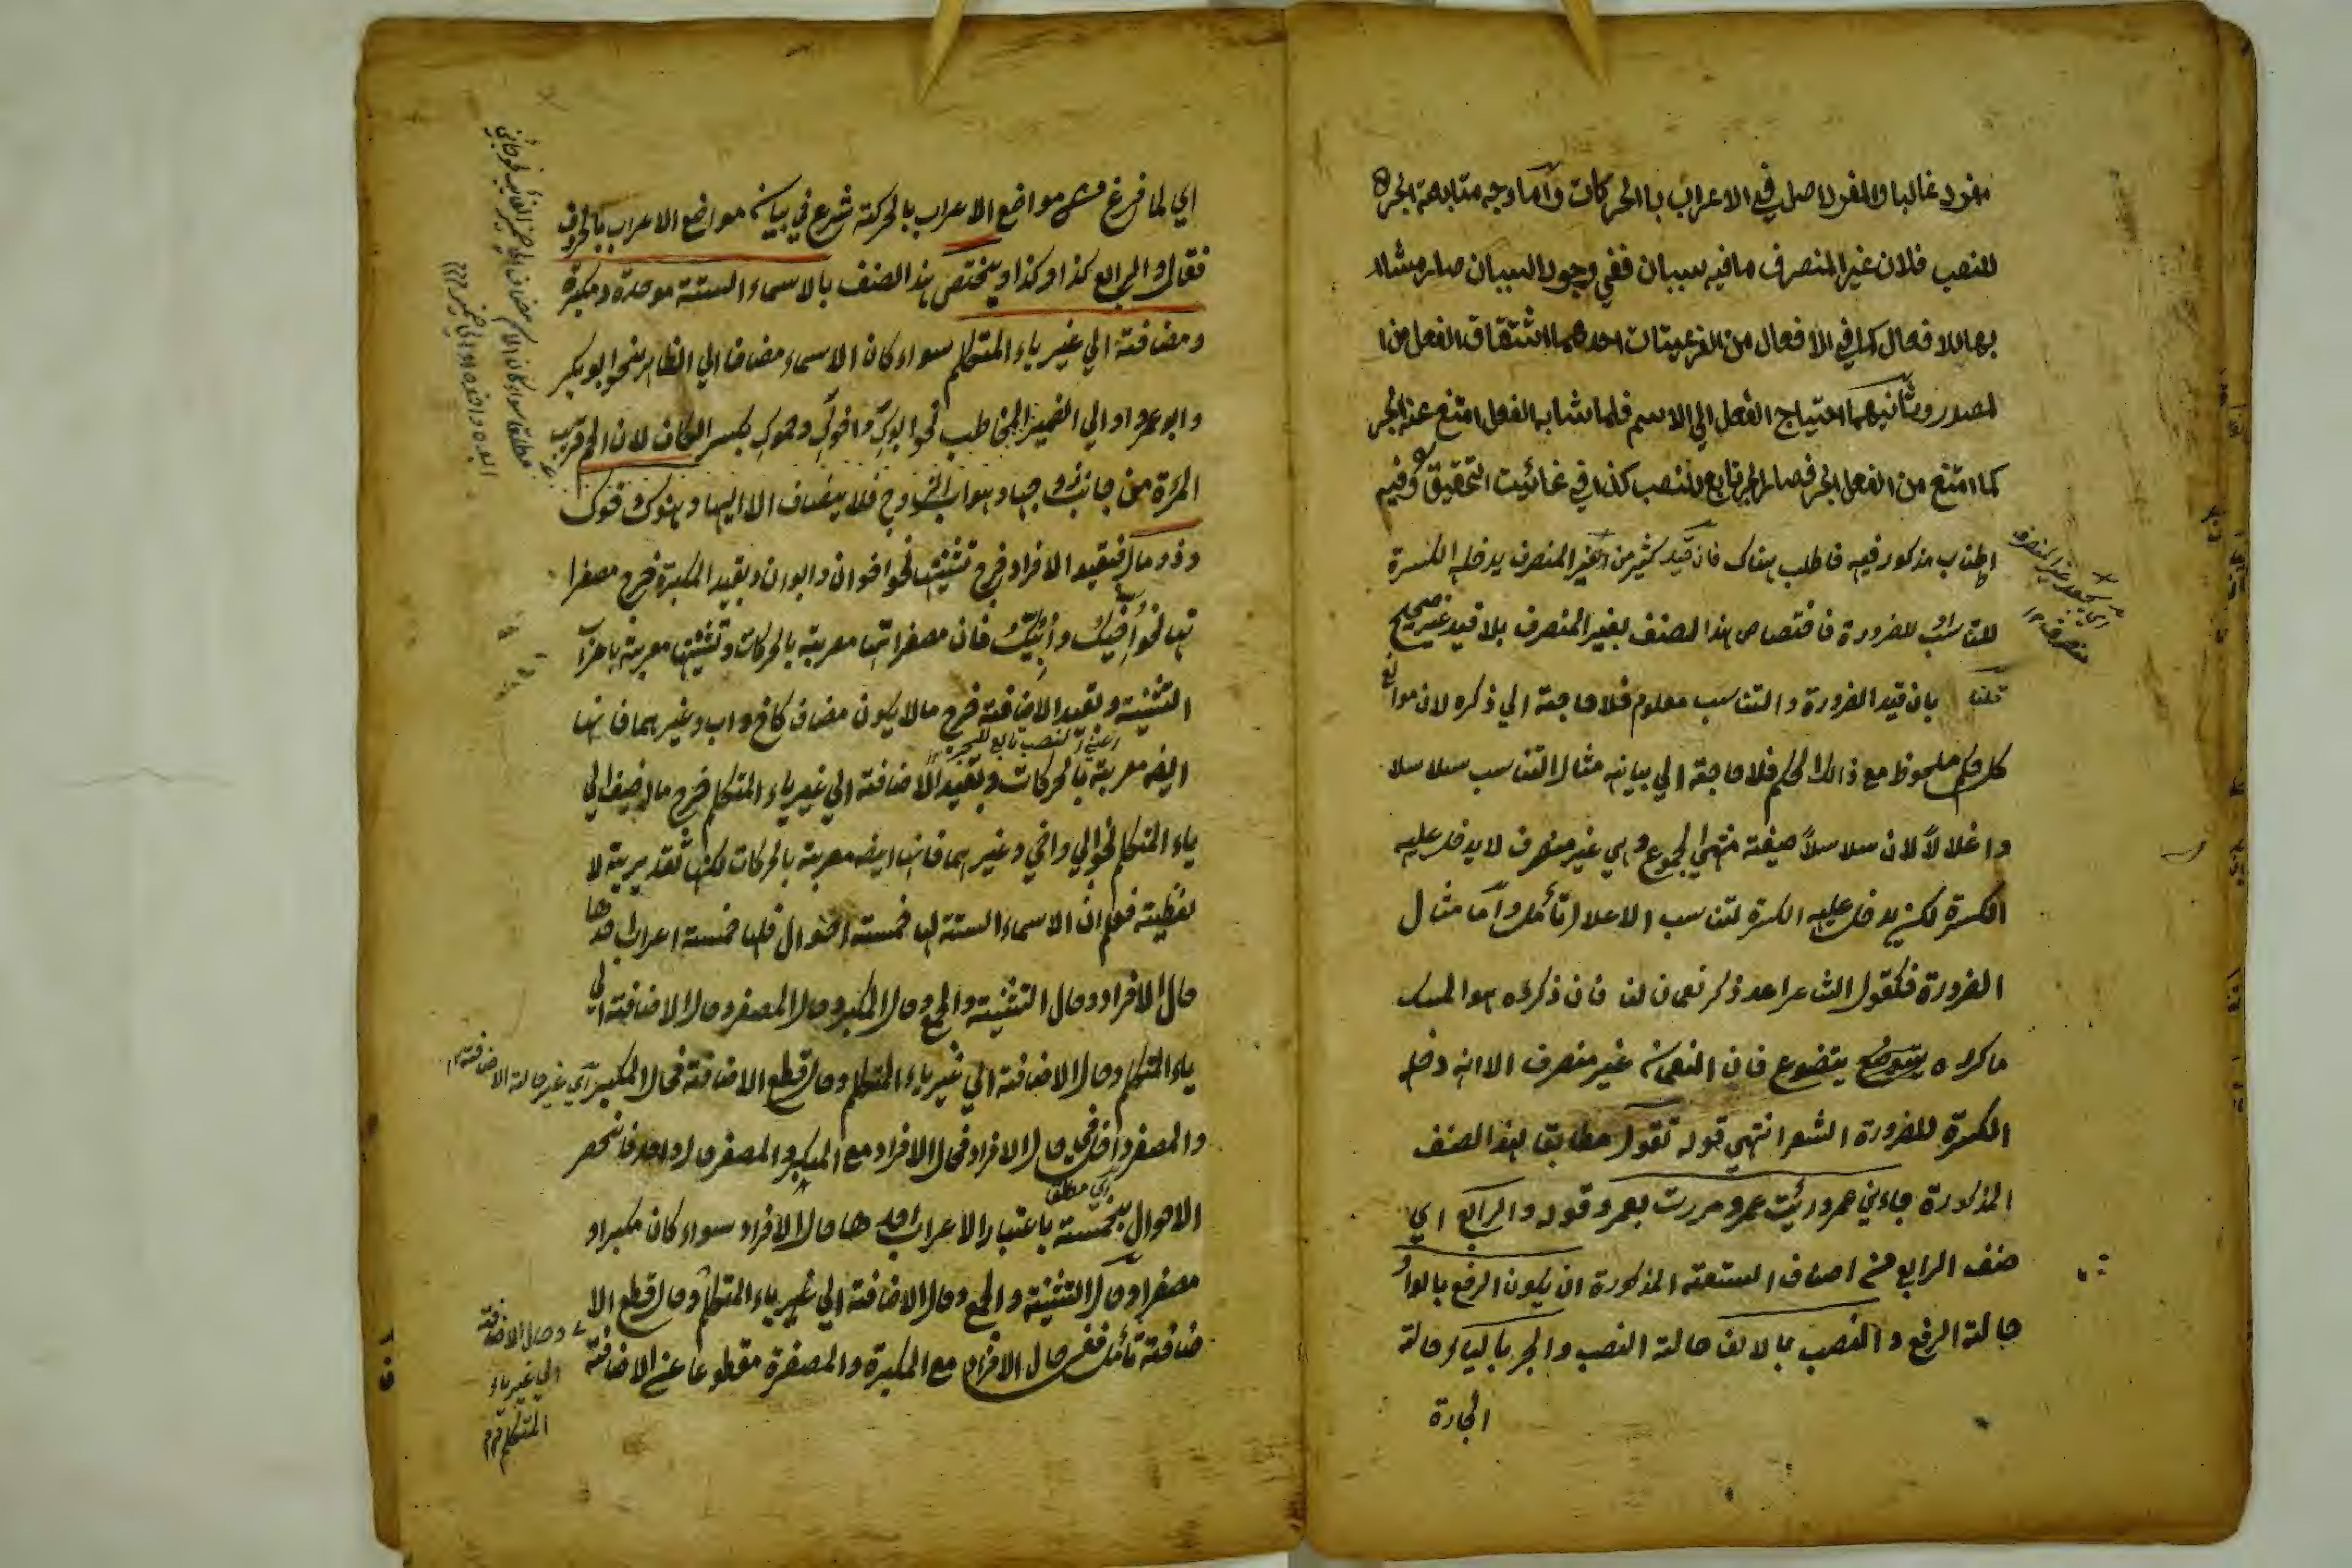 مفرد غالبا والمفرد اصل في الاعراب باالحركات واما وجه متابعة الجر
للنصب فلان غير المنصرف ما فيه سببان ففي وجود السببان صار مشا
بها للافعال كما في الافعال من الفرعيتان احدهما اشتقاق الفعل من ا
لمصدر وثانيهما احتياج الفعل الي الاسم فلما شابه الفعل امتنع عنه الجر
كما امتنع من الفعل الجر فصار الجر تابع للنصب كذا في غائيت التحقيق وفيه
اطناب مذكور فيه فاطلب هناك فان قيد كثير من الغير المنصرف يدخله الكسرة
للتناسب او للضرورة فاختصاص هذا الصنف بغير المنصرف بلا قيد غير صحيح
قلنا بان قيد الضرورة والتناسب معلوم فلا حاجة الي ذكره لان موانع
كل حكم ملحوظ مع ذالك الحكم فلا حاجة الي بيانه مثال التناسب سلاسلا
واغلالا لان سلاسلا صيغة منتهي الجموع وهي غير منصرف لا يدخل عليه
الكسرة لكن يدخل عليه الكسرة لتناسب الاغلال تأمل واما مثال
الضرورة فكقول الشاعر اعد ذكر نعمان لنا فان ذكره هو المسك
ما كررته يتضوع فان النعمان غير منصرف الا انه دخل
الكسرة للضرورة الشعر انتهي قوله تقول مطابقا لهذا الصنف
المذكورة جاءني عمر ورئيت عمر ومررت بعمر وقوله والرابع اي
صنف الرابع من اصناف التسعة المذكورة ان يكون الرفع بالواو
حالة الرفع والنصب بالالف حالة النصب والجر بالياء حالة
الجارة
اي لما فرغ من مواضع الاعراب بالحركة شرع في بيان مواضع الاعراب بالحروف
فقال والرابع كذا وكذا ويختص هذا الصنف بالاسماء الستة موحدة ومكبرة
ومضافة الي غير ياء المتكلم سواء كان الاسماء مضافا الي الظاهر نحو ابو بكر
وابو عمرو او الي الضمير المخاطب نحو ابوك واخوك وحموك بكسر الكاف لان الحم قريب
المرءة من جانب زوجها وهو اب الزوج فلا يضاف الا اليها وهنوك وفوك
وذو مال فبقيد الافراد خرج تثنيتها نحو اخوان وابوان وبقيد المكبرة خرج مصغرا
تها نحو أخيك وأبيك فان مصغراتها معربة بالحركات وتثنيتها معربة باعراب
التثنية وبقيد الاضافة خرج ما لا يكون مضاف كاخ واب وغيرهما فانها
ايضا معربة بالحركات وبقيد الاضافة الي غير ياء المتكلم خرج ما اضيف الي
ياء المتكلم نحو ابي واخي وغيرهما فانها ايضا معربة بالحركات لكنها تقديرية لا
لفظية فعلم ان الاسماء الستة لها خمسة احوال فلها خمسة اعراب احدها
حال الافراد وحال التثنية والجمع وحال المكبر وحال المصغر وحال الاضافة الي
ياء المتكلم وحال الاضافة الي غير ياء المتكلم وحال قطع الاضافة فحال المكبر اي غير حالة الاضافة
والمصغر داخل في حال الافراد فحال الافراد مع المكبر والمصغر حال واحد فانحصر
الاحوال بخمسة باعتبار الاعراب احدها حال الافراد سواء كان مكبرا او
مصغرا وحال التثنية والجمع وحال الاضافة الي غير ياء المتكلم وحال قطع الا
ضافة تأمل ففي حال الافراد مع المكبرة والمصغرة مقطوعا عن الاضافة
وحال الاضافة
الي غير ياء
المتكلم